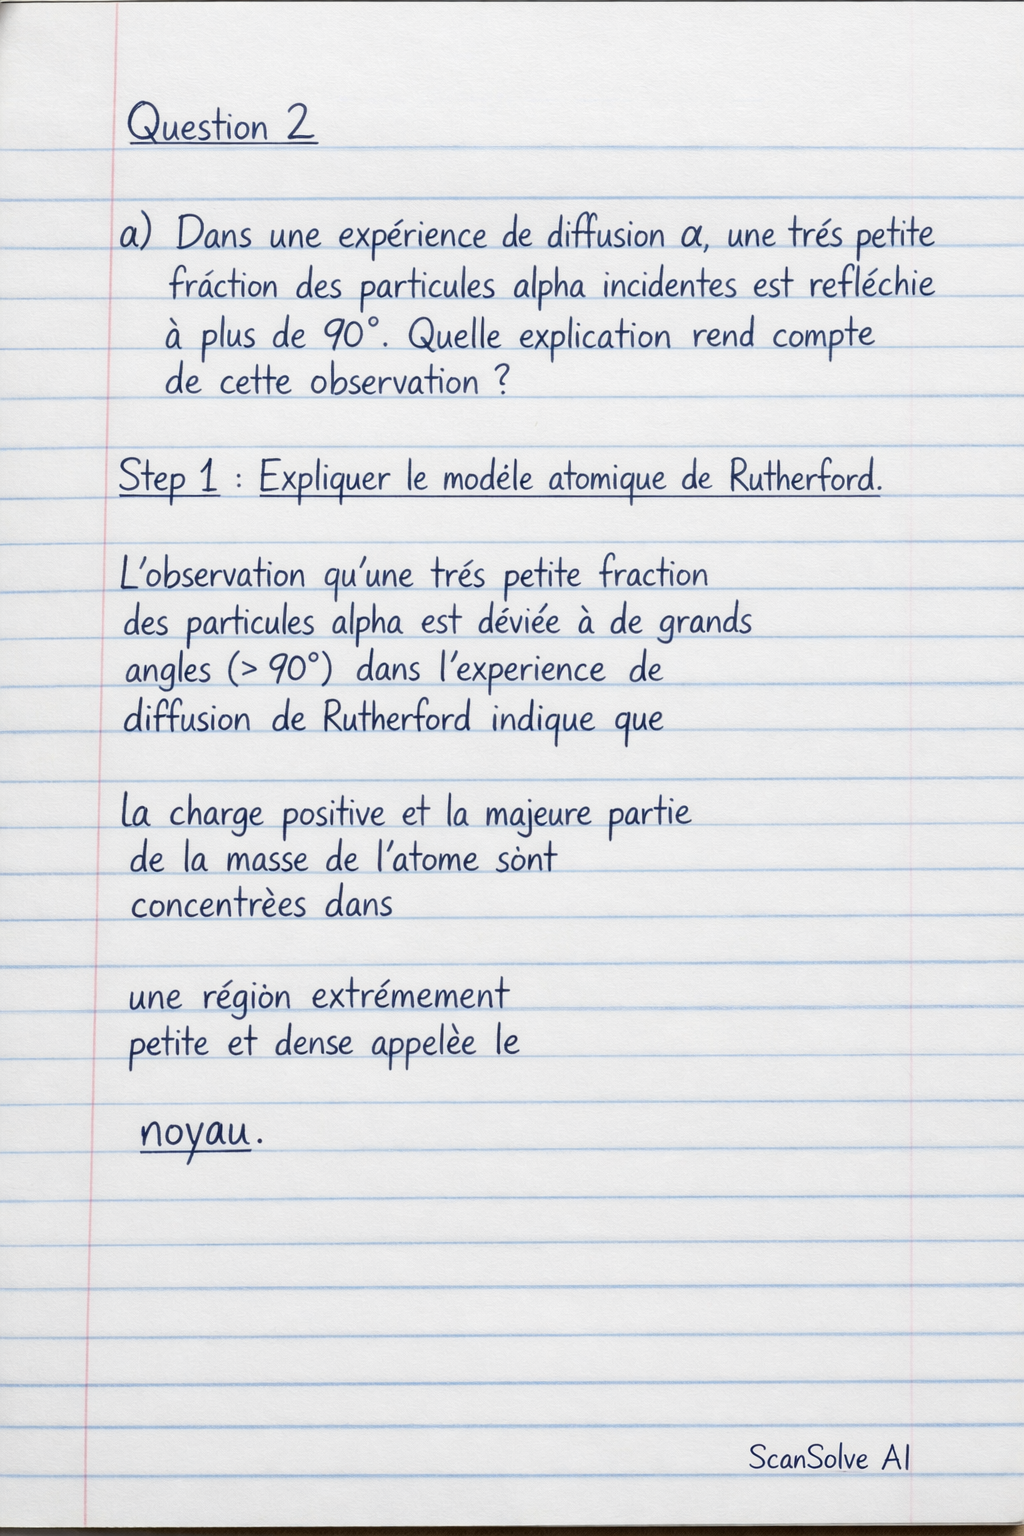 Question 2
a) Dans une expérience de diffusion α, une trés petite
fráction des particules alpha incidentes est refléchie
à plus de 90°. Quelle explication rend compte
de cette observation ?
Step 1 : Expliquer le modéle atomique de Rutherford.
L'observation qu'une trés petite fraction
des particules alpha est déviée à de grands
angles (> 90°) dans l'experience de
diffusion de Rutherford indique que
la charge positive et la majeure partie
de la masse de l'atome sònt
concentrèes dans
une régiòn extrémement
petite et dense appelèe le
noyau.
ScanSolve AI